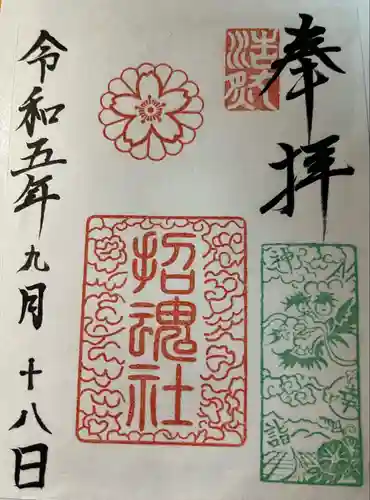 奉拝
招魂社
令和五年九月十八日